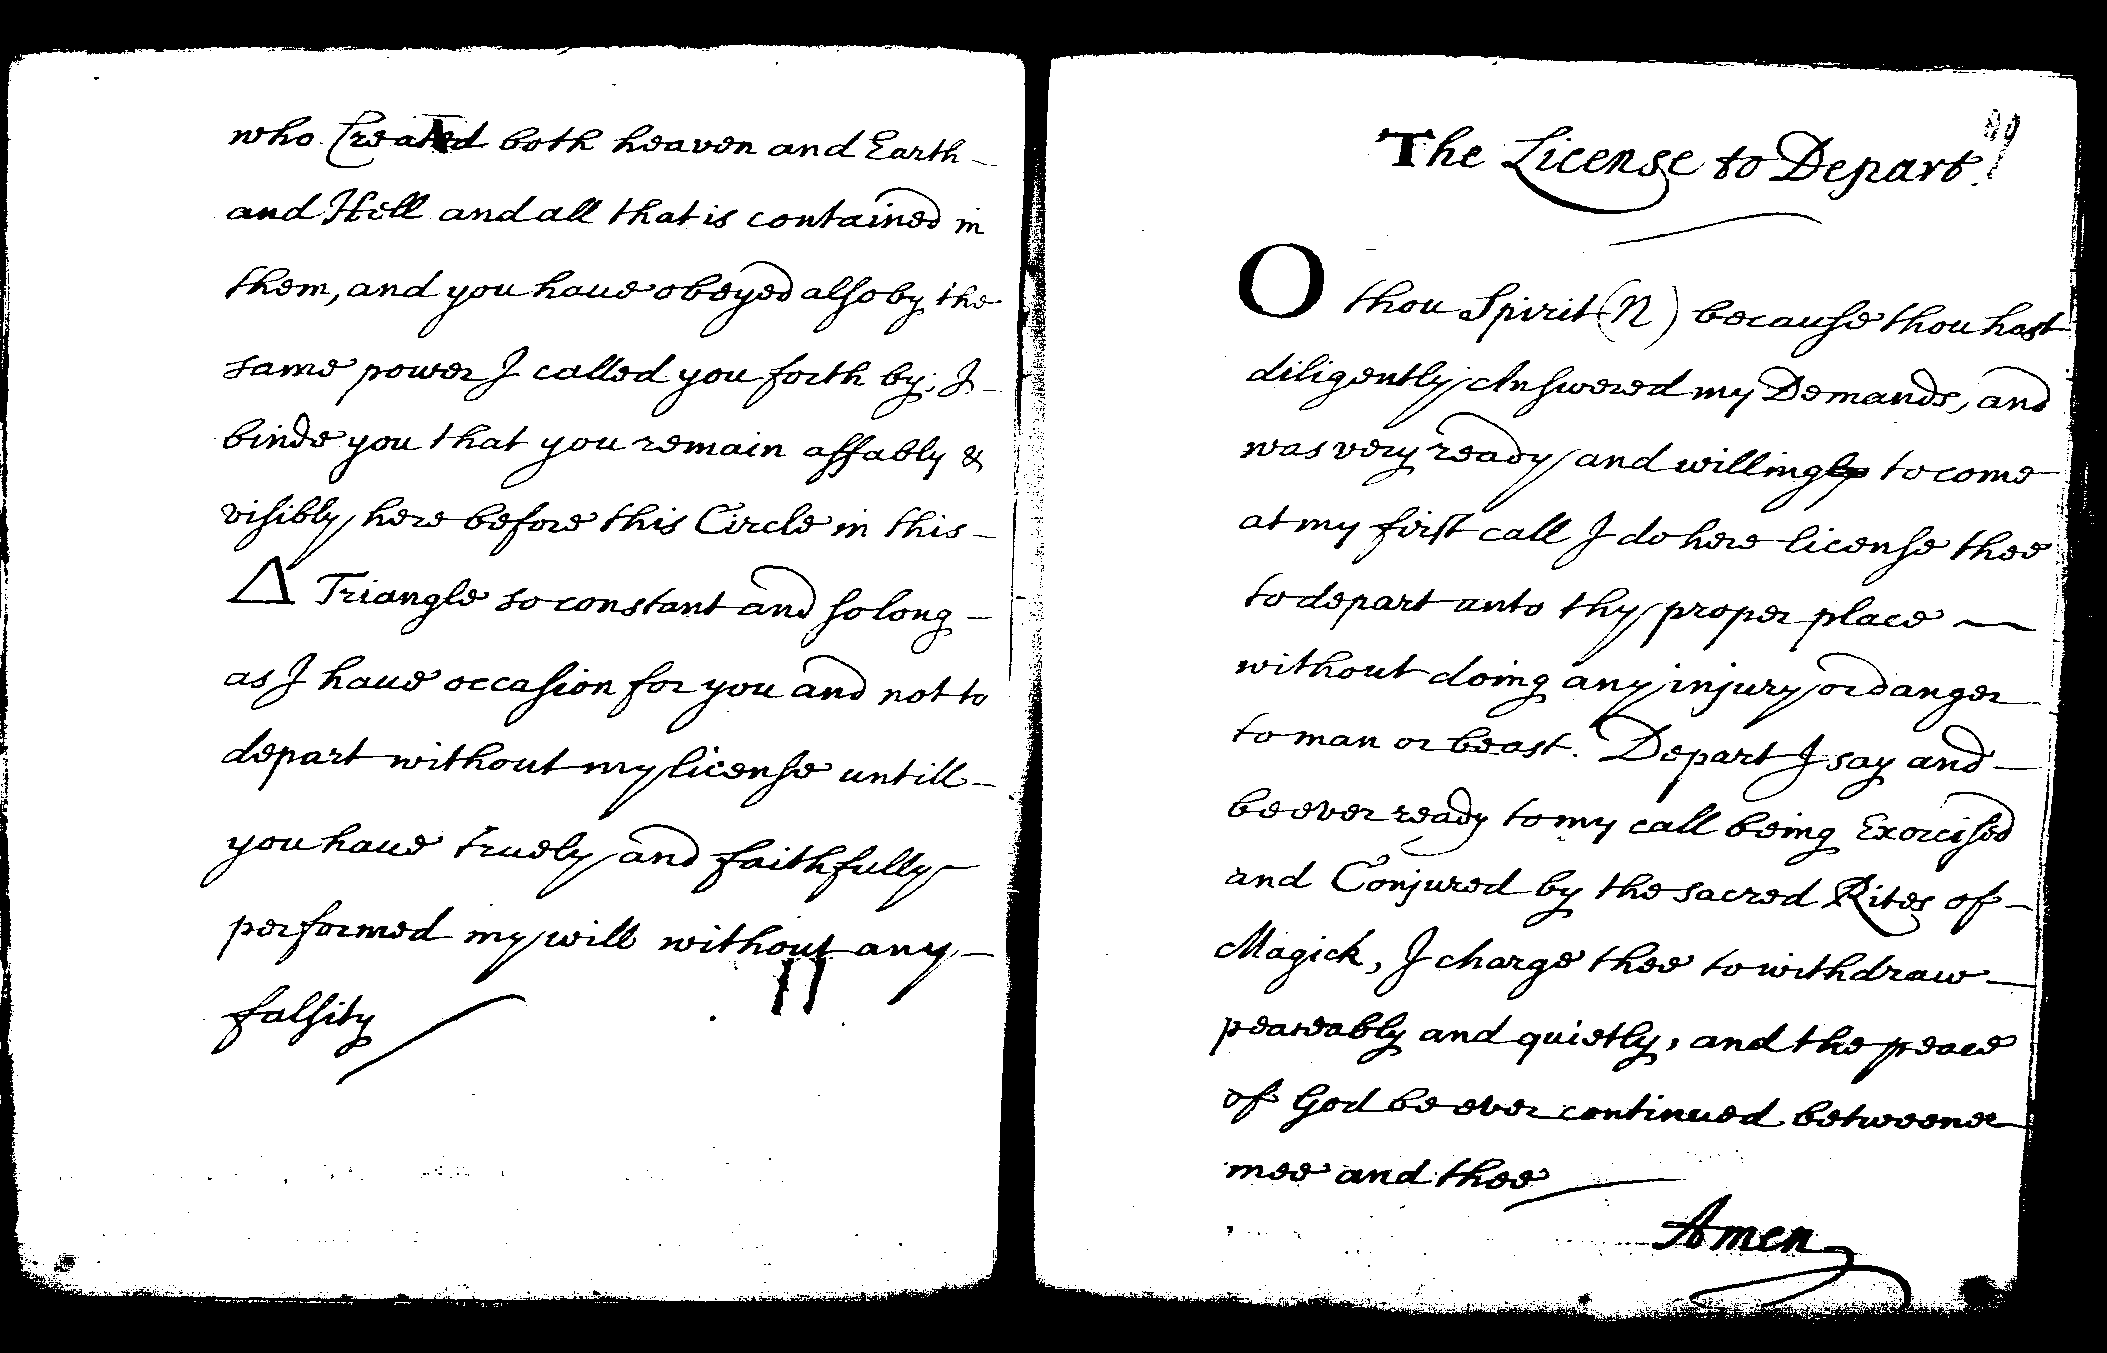 who Created both heaven and Earth –
and Hell and all that is contained in
them, and you haue obeyed also by the
same power I called you forth by; I –
binde you that you remain affably &
visibly here before this Circle in this –
△ Triangle so constant and so long –
as I haue occasion for you and not to
depart without my license untill –
you haue truely and faithfully
performed my will without any –
falsity
The License to Depart.
O thou Spirit (N) because thou hast
diligently Answered my Demands, and
was very ready and willing to come
at my first call I do here license thee
to depart unto thy proper place —
without doing any injury or danger
to man or beast. Depart I say and –
be ever ready to my call being Exorcised
and Conjured by the sacred Rites of –
Magick, I charge thee to withdraw –
peaceably and quietly, and the peace
of God be ever continued betweene
mee and thee
Amen